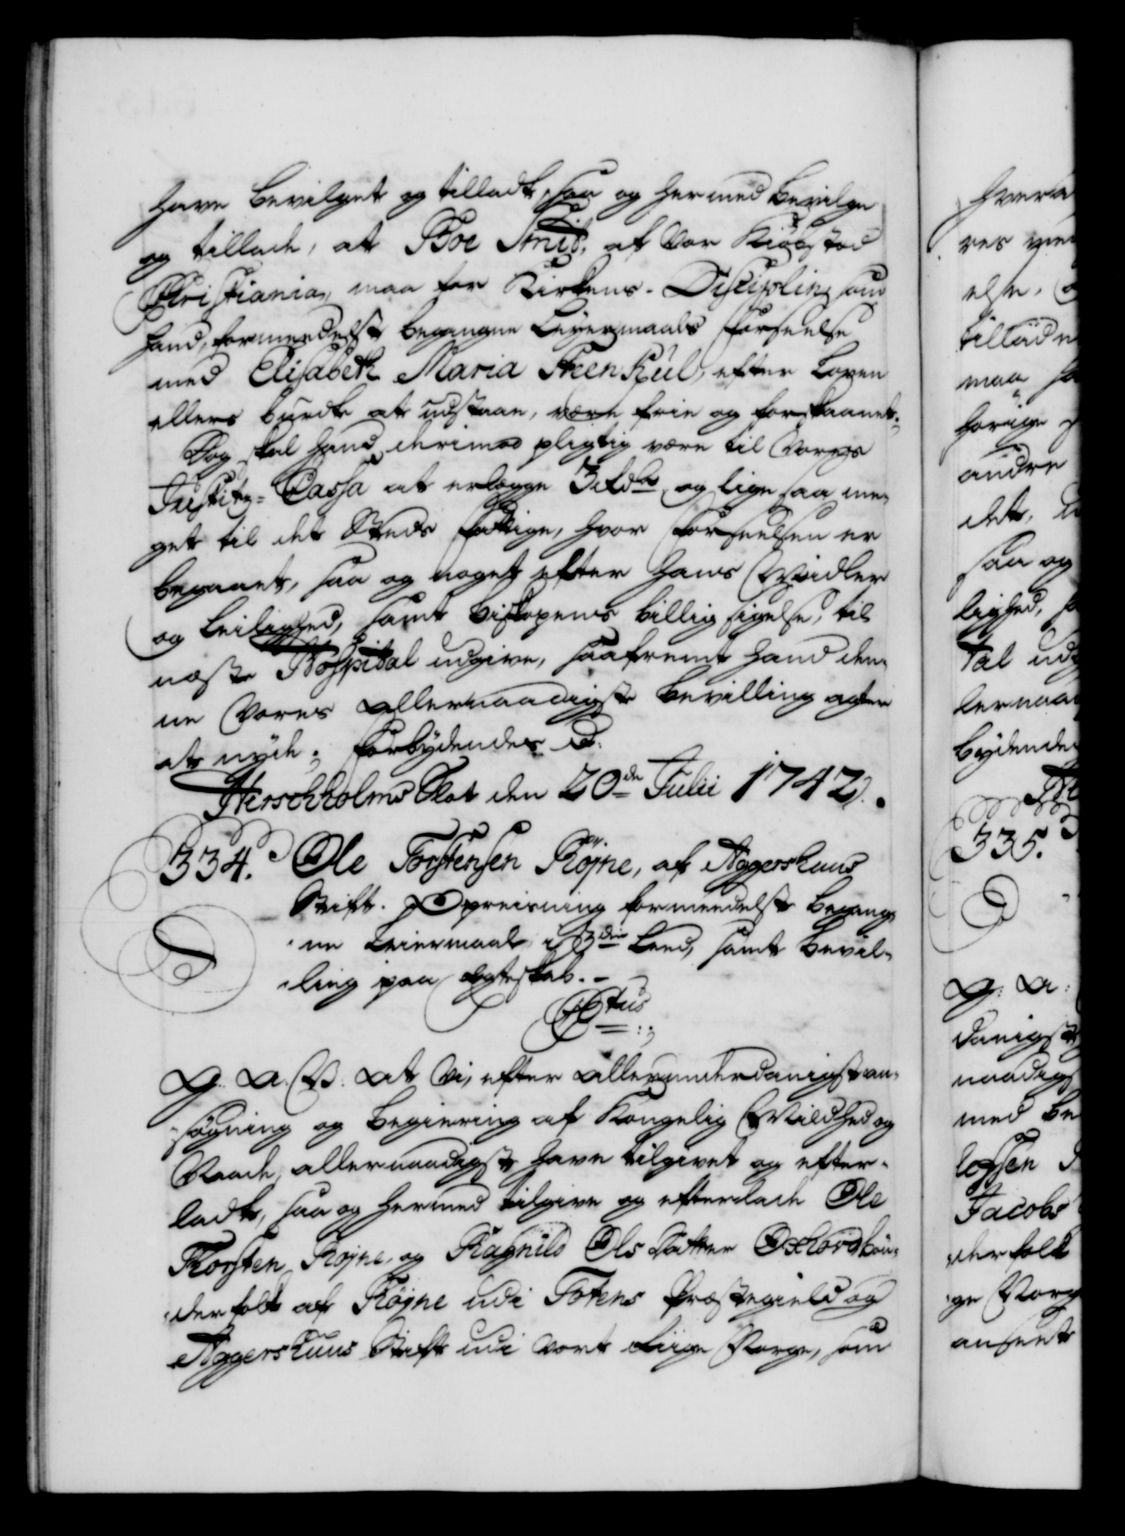 have bevilget og tilladt, saa og hermed bevilge
og tillade, at Boe Smid, af Vor Kiøbstad
Christiania, maa for Kirkens Disciplin, som
hand, formedelst begangne Leyermaals Forseelse
med Elisabeth Maria Steen Kül, efter Loven
ellers burdte at udstaae, være frie og forskaanet;
Dog skal hand derimod pligtig være til Vores
Justitz-Cassa at erlægge 3 Rdlr, og lige saa me-
get til det Steds Fattige, hvor Forseelsen er
begaaet, saa og noget efter hans Midler
og Leilighed, samt Biskopens billig sigelse, til
næste Hospital udgive, saafremt hand den-
ne Vores allernaadigste Bevilling agter
at nyde; Forbydendes &c.
Hirschholms Slot den 20de Julii 1742.
334. Ole Torstensen Røjne, af Aggershuus
Stift. Opreisning formedelst begang-
ne Leiermaal i 3die Leed, samt Bevil-
ling paa Ægteskab.
C6tus
G. A. V. At Vi, efter allerunderdanigst an-
søgning og Begiering af Kongelig Mildhed og
Naade, allernaadigst have tilgivet og efter-
ladt, saa og hermed tilgive og efterlade Ole
Torsten Rojne, og Ragnild Ols Datter bøn-
derfolk af Røjne udi Totens Præstegield og
Aggershuus Stift udi Vort Riige Norge, som
hvera
res
else,
tillade
maa
horige
andre
det,
saa og
lighed,
tal ud
lernaa
bydende
335.
G. A.
danigst
naadigst
med be
logsen
Jacobs
derfolk
ge Norg
anseet